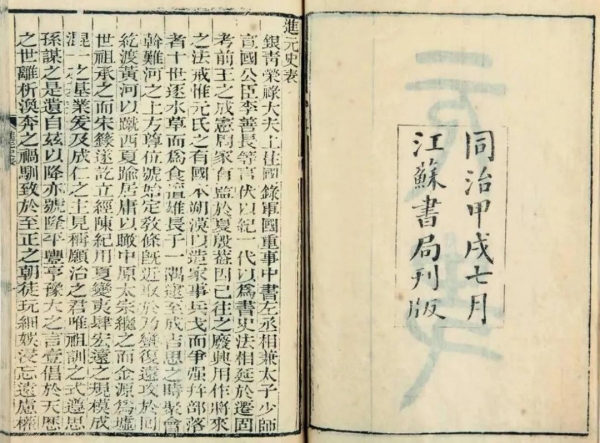 同治甲戌七月
江蘇書局刊版
進元史表
銀青榮祿大夫上柱國錄軍國重事中書左丞相兼太子少師
宣國公臣李善長等言伏以紀一代以為書史法相延於遷固
考前王之成憲周家有監於夏殷蓋因已往之廢興用作將來
之法戒惟元氏之有國本朔漠以造家事兵戈而爭强并部落
者十世逐水草而為食擅雄長于一隅逮至成吉思之時聚會
斡難河之上方尊位號始定教條既近取於乃蠻復遠攻於回
紇渡黃河以蹴西夏踰居庸以瞰中原太宗繼之而金源為墟
世祖承之而宋籙遂訖立經陳紀用夏變夷肆宏遠之規模成
混一之基業爰及成仁之主見稱願治之君唯祖訓之式遵思
孫謀之是遺自茲以降亦號隆平豐亨豫大之言壹倡於天厯
之世離析渙奔之禍馴致於至正之朝徒玩細娛浸忘遠慮權